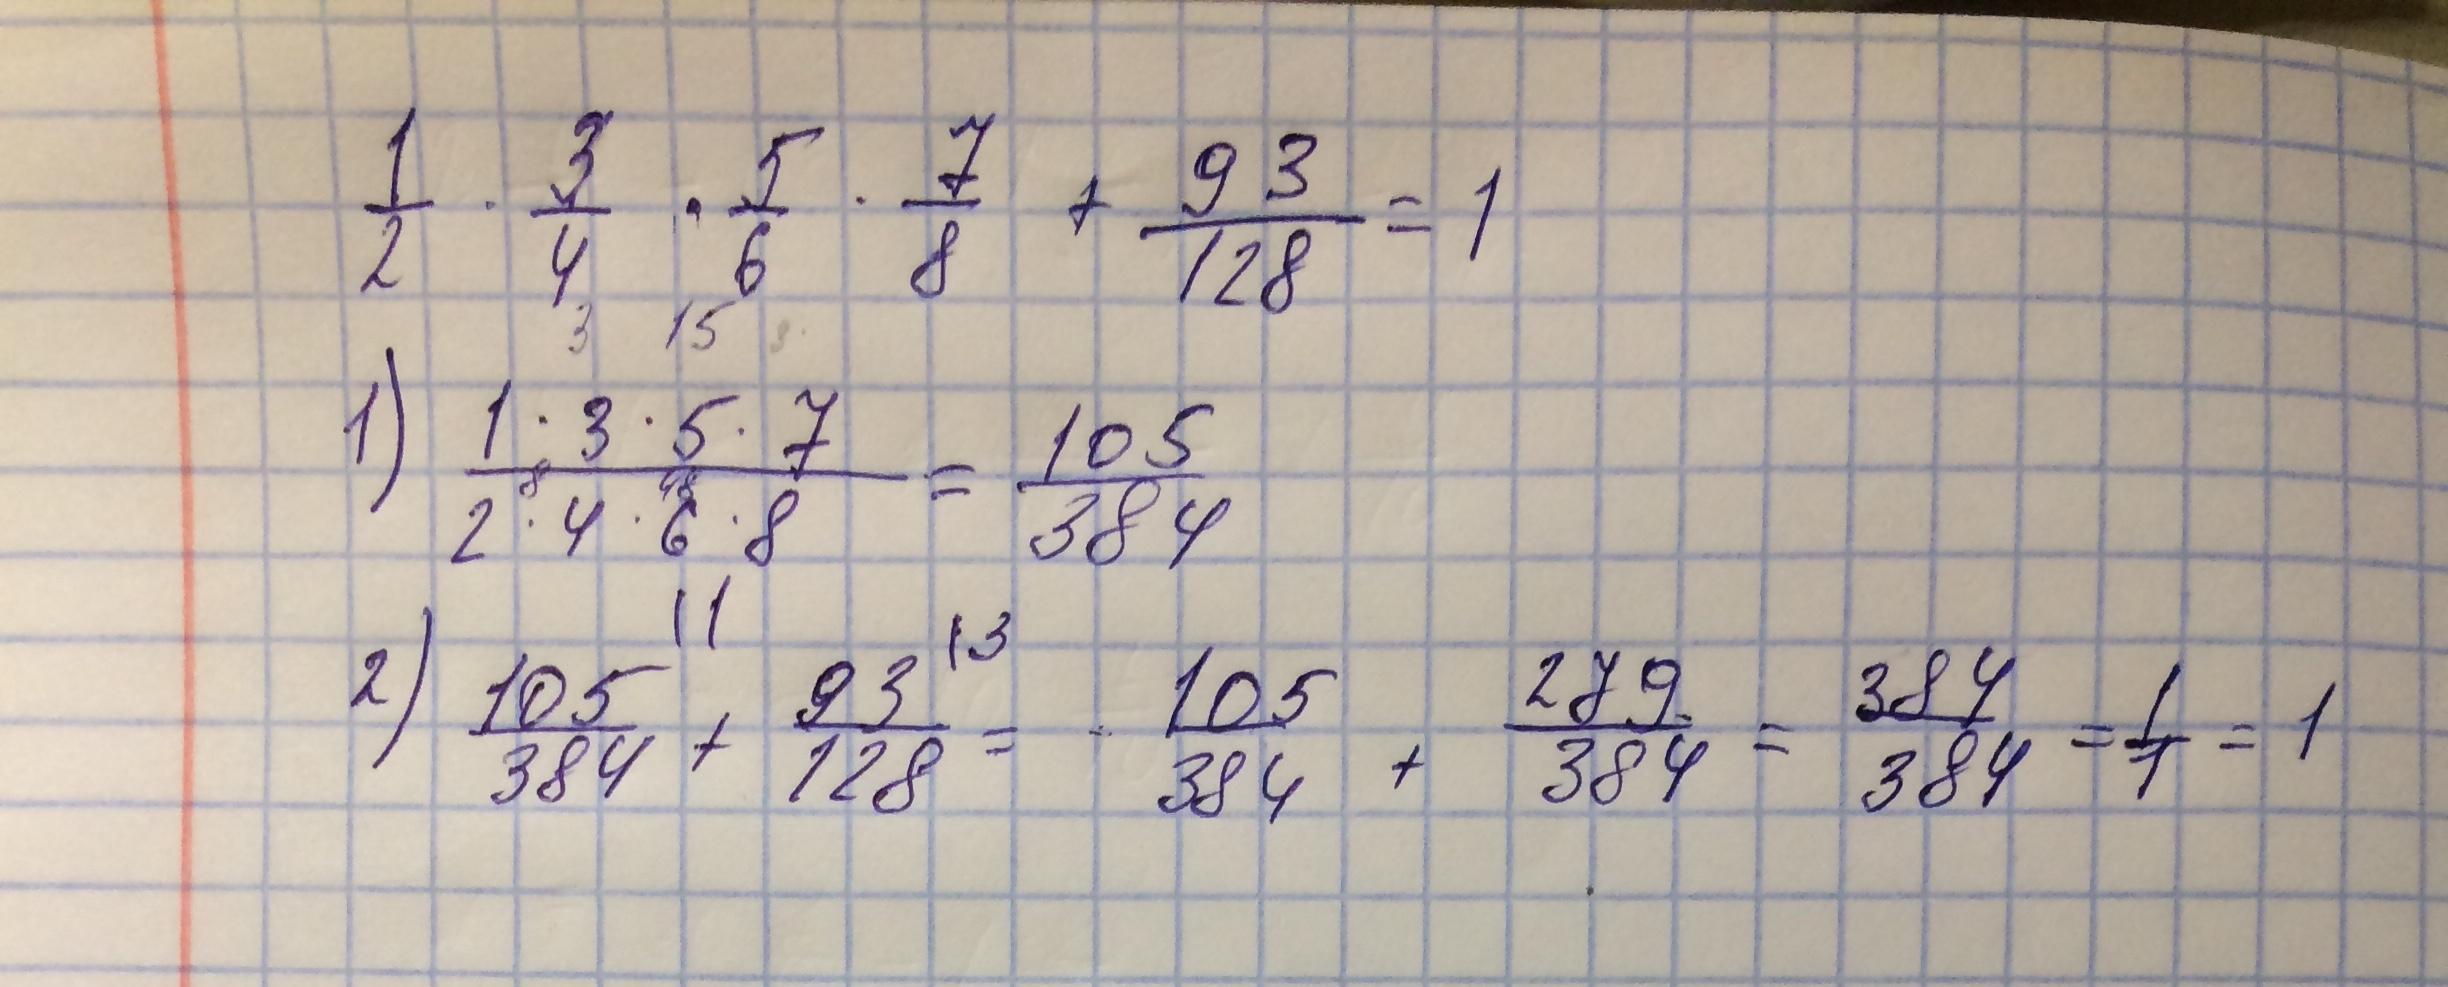 1/2 · 3/4 · 5/6 · 7/8 + 93/128 = 1
3 15
1) 1·3·5·7 / 2·4·6·8 = 105/384
8 48
2) 105/384 |1 + 93/128 |3 = 105/384 + 279/384 = 384/384 = 1/1 = 1